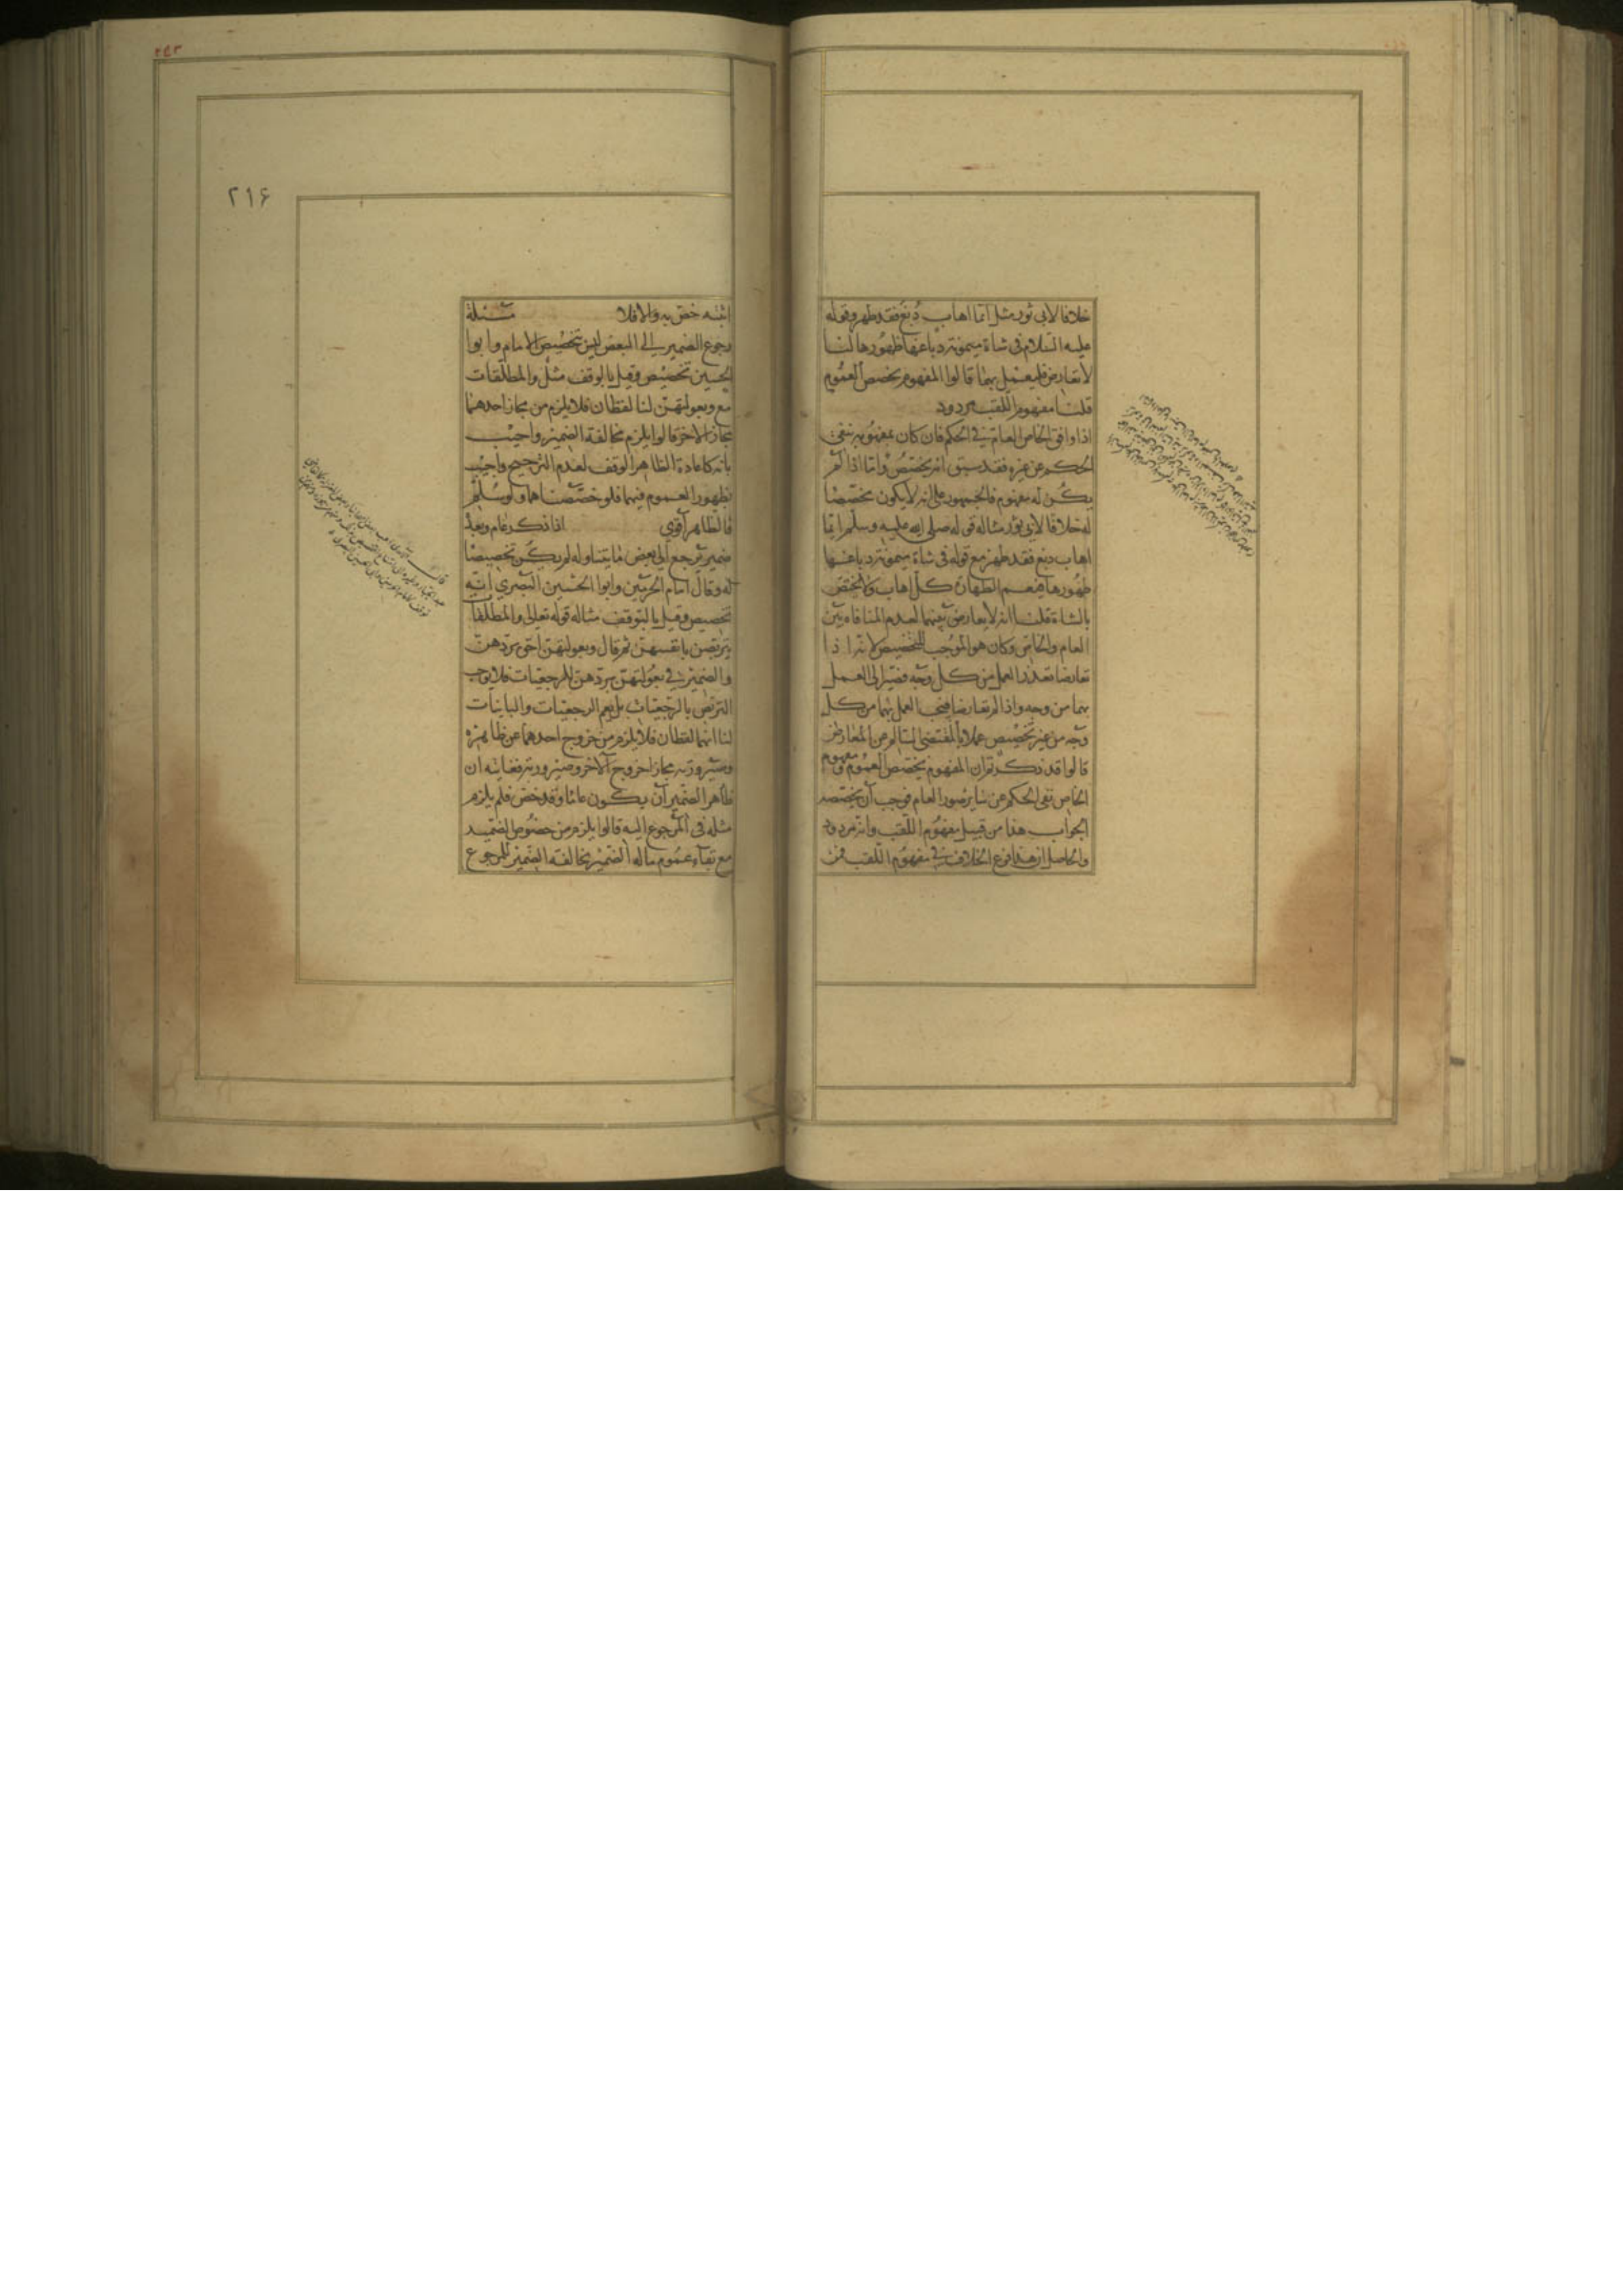 خلافا لابى ثور مثل ايما اهاب دبغ فقد طهر وقوله
عليه السلام فى شاة ميمونة دباغها طهورها لنا
لا تعارض فليعمل بهما قالوا المفهوم يخصص العموم
قلنا مفهوم اللقب مردود
اذا وافق الخاص العام في الحكم فان كان بمفهومه ينفى
الحكم عن غيره فقد سبق انه يخصص واما اذا لم
يكن له مفهوم فالجمهور على انه لا يكون مخصصا
له خلافا لابى ثور مثاله قوله صلى الله عليه وسلم ايما
اهاب دبغ فقد طهر مع قوله فى شاة ميمونة دباغها
طهورها فيعم الطهارة كل اهاب ولا يختص
بالشاة قلنا انه لا تعارض بينهما لعدم المنافاة بين
العام والخاص وكان هو الموجب للتخصيص لانه اذا
تعارضا تعذر العمل من كل وجه فصير الى العمل
بهما من وجه واذا لم تعارضا فيجب العمل بهما من كل
وجه من غير تخصيص عملا بالمقتضى السالم عن المعارض
قالوا قد ذكرتم ان المفهوم يخصص العموم ومفهوم
الخاص نفى الحكم عن سائر صور العام فوجب ان يخصصه
الجواب هذا من قبيل مفهوم اللقب وانه مردود
والحاصل ان هذا فرع الخلاف في مفهوم اللقب فمن
٢١۶
اثبته خص به والا فلا مسئلة
رجوع الضمير الى البعض ليس تخصيص الامام وابوا
الحسين تخصيص وقيل بالوقف مثل والمطلقات
مع وبعولتهن لنا لفظان فلا يلزم من مجاز احدهما
مجاز الاخر قالوا يلزم مخالفة الضمير واجيب
بانه كاعادة الظاهر الوقف لعدم الترجيح واجيب
بظهور العموم فيهما فلو خصصناهما ولو سلم
فالظاهر اقوي اذا ذكر عام وبعده
ضمير يرجع الى بعض ما يتناوله لم يكن تخصيصا
له وقال امام الحرمين وابوا الحسين البصري انه
تخصيص وقيل بالتوقف مثاله قوله تعالى والمطلقات
يتربصن بانفسهن ثم قال وبعولتهن احق بردهن
والضمير في بعولتهن بردهن للرجعيات فلا يوجب
التربص بالرجعيات بل يعم الرجعيات والباينات
لنا انهما لفظان فلا يلزم من خروج احدهما عن ظاهره
وصيرورته مجازا خروج الآخر وصيرورته فغايته ان
ظاهر الضمير ان يكون عاما وقد خص فلم يلزم
مثله فى المرجوع اليه قالوا يلزم من خصوص الضمير
مع بقاء عموم ماله الضمير مخالفة الضمير للمرجوع